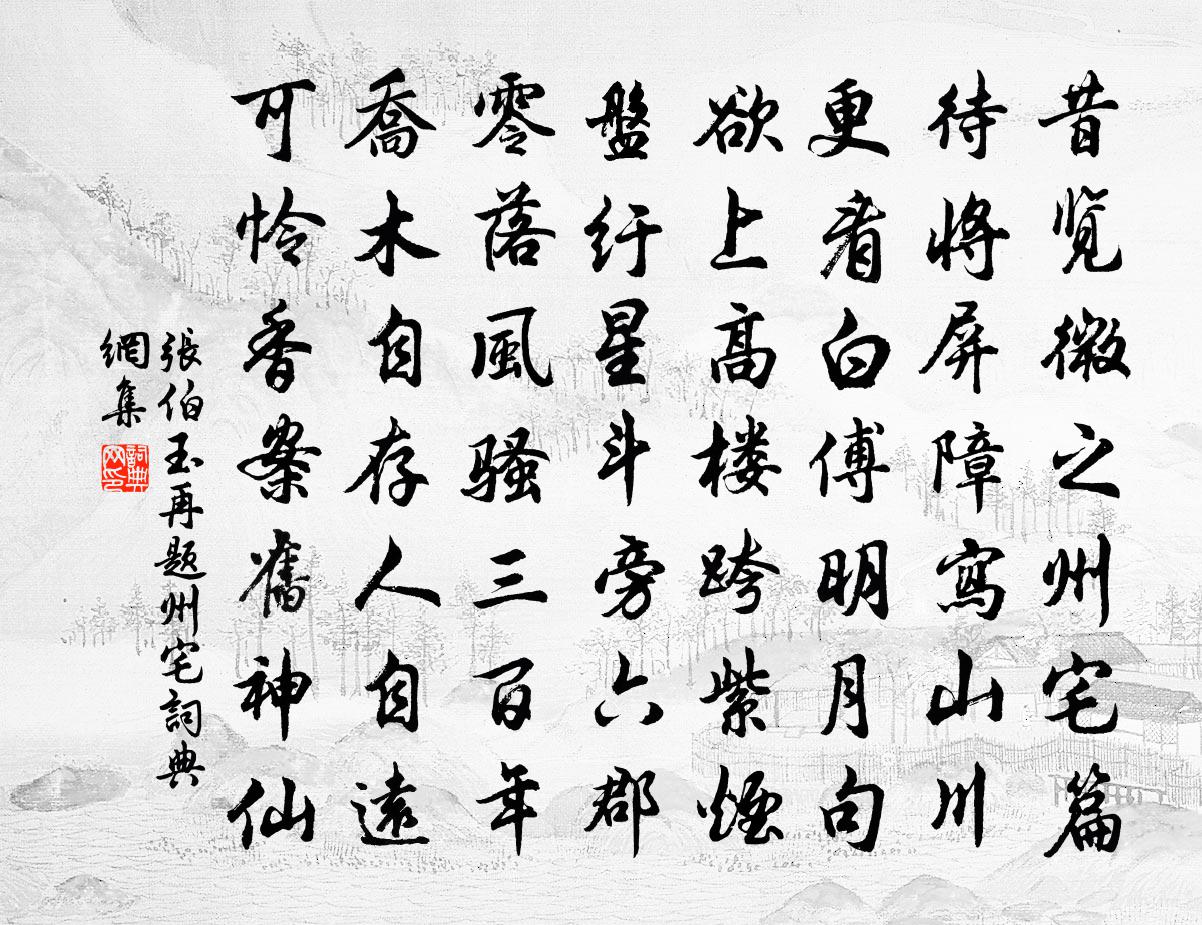 昔览微之州宅篇
待将屏障寫山川
更看白傅明月句
欲上高楼跨紫煙
盤纡星斗旁六郡
零落風骚三百年
喬木自存人自遠
可怜香案舊神仙
張伯玉再题州宅詞典
網集
詞典網印